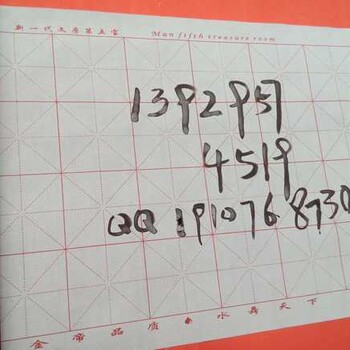 新一代文房第五宝 Man fifth treasure room
1392957
4519
QQ:910768730
金帝品质●水舞天下